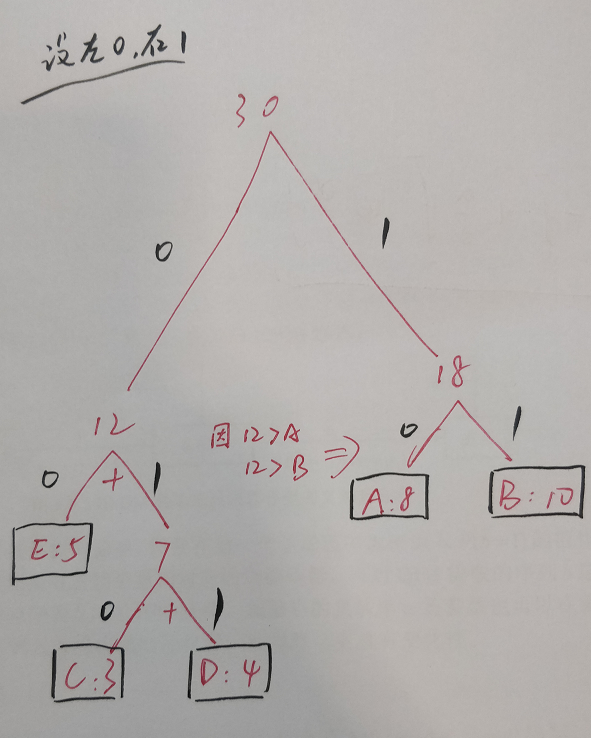 设左0,右1
30
0 1
18
12
因 12>A
12>B ⇒
0 1
0 + 1
A:8 B:10
E:5
7
0 + 1
C:3 D:4